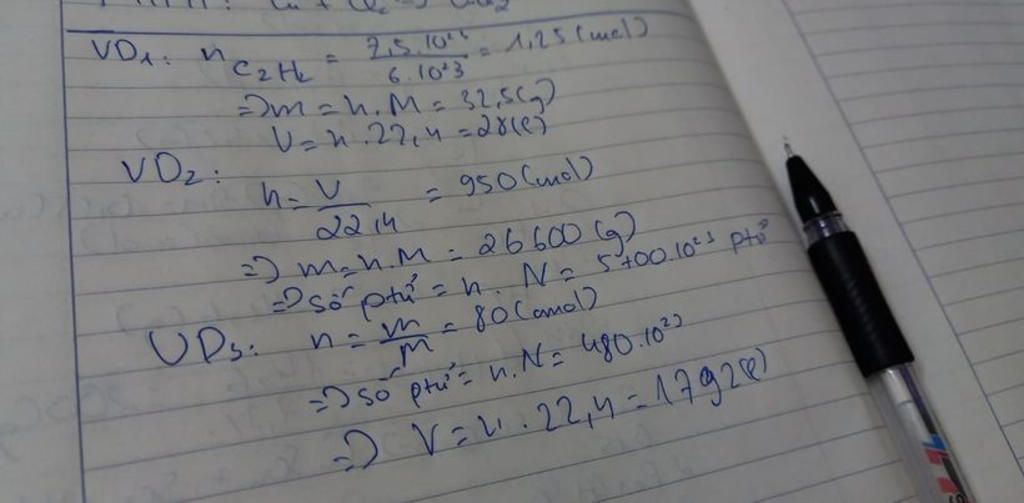 VD1: n C2H2 = 7,5.10²³ / 6.10²³ = 1,25 (mol)
=> m = n.M = 32,5(g)
V = n.22,4 = 28(l)
VD2:
n = V / 22,4 = 950 (mol)
=> m = n.M = 26600 (g)
=> số ptử = n. N = 5700.10²³ ptử
VD3: n = m / M = 80 (mol)
=> số ptử = n.N = 480.10²³
=> V = n. 22,4 = 1792(l)